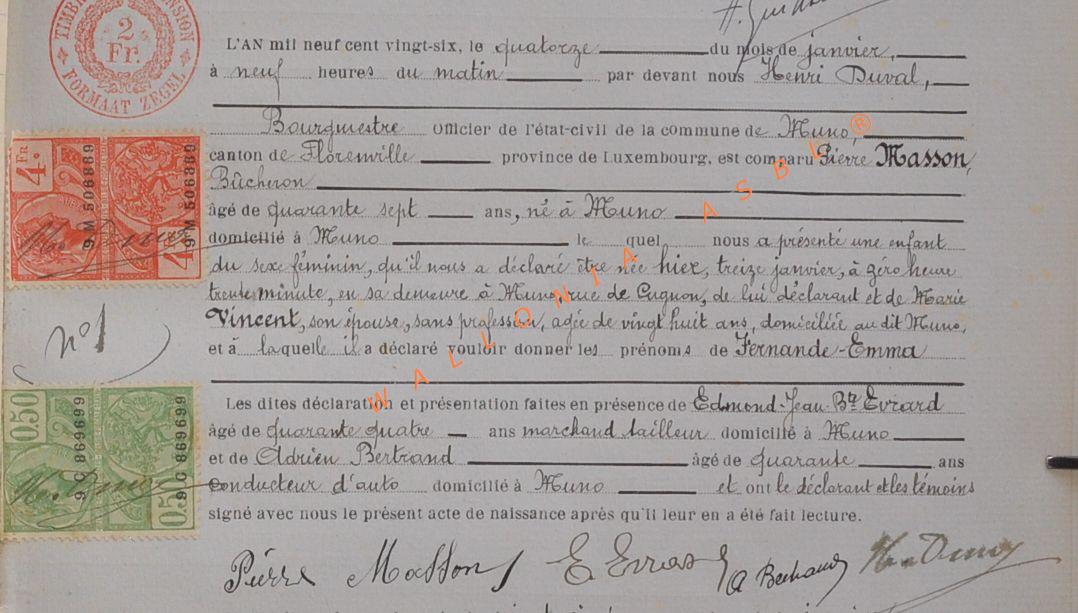 TIMBRE DIMENSION
2
Fr.
FORMAAT ZEGEL
L'AN mil neuf cent vingt-six, le quatorze du mois de janvier,
à neuf heures du matin par devant nous Henri Duval,
Bourgmestre Officier de l'état-civil de la commune de Muno,
canton de Florenville province de Luxembourg, est comparu Pierre Masson,
Bûcheron
âgé de quarante sept ans, né à Muno
domicilié à Muno le quel nous a présenté une enfant
du sexe féminin, qu'il nous a déclaré être née hier, treize janvier, à zéro heure
trente minute, en sa demeure à Muno, rue de Cugnon, de lui déclarant et de Marie
Vincent, son épouse, sans profession, agée de vingt huit ans, domiciliée au dit Muno,
et à laquelle il a déclaré vouloir donner les prénoms de Fernande-Emma
Les dites déclaration et présentation faites en présence de Edmond-Jean-Bte Evrard
âgé de quarante quatre ans marchand tailleur domicilié à Muno
et de Adrien Bertrand âgé de quarante ans
conducteur d'auto domicilié à Muno et ont le déclarant et les témoins
signé avec nous le présent acte de naissance après qu'il leur en a été fait lecture.
Pierre Masson E Evrard A Bertrand
4 Fr
9 M 506889
9 M 506889
4 Fr
n°1
0.50
9 C 869699
9 C 869699
0.50
WALLONIA ASBL ®